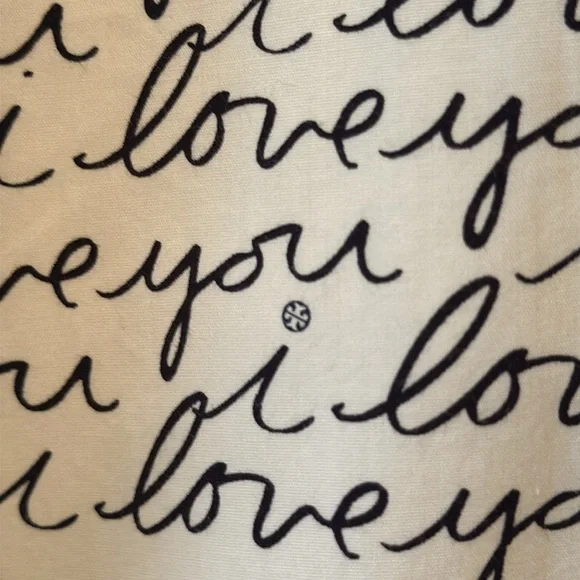 i lo
i love yo
ve you
u i lov
i love yo